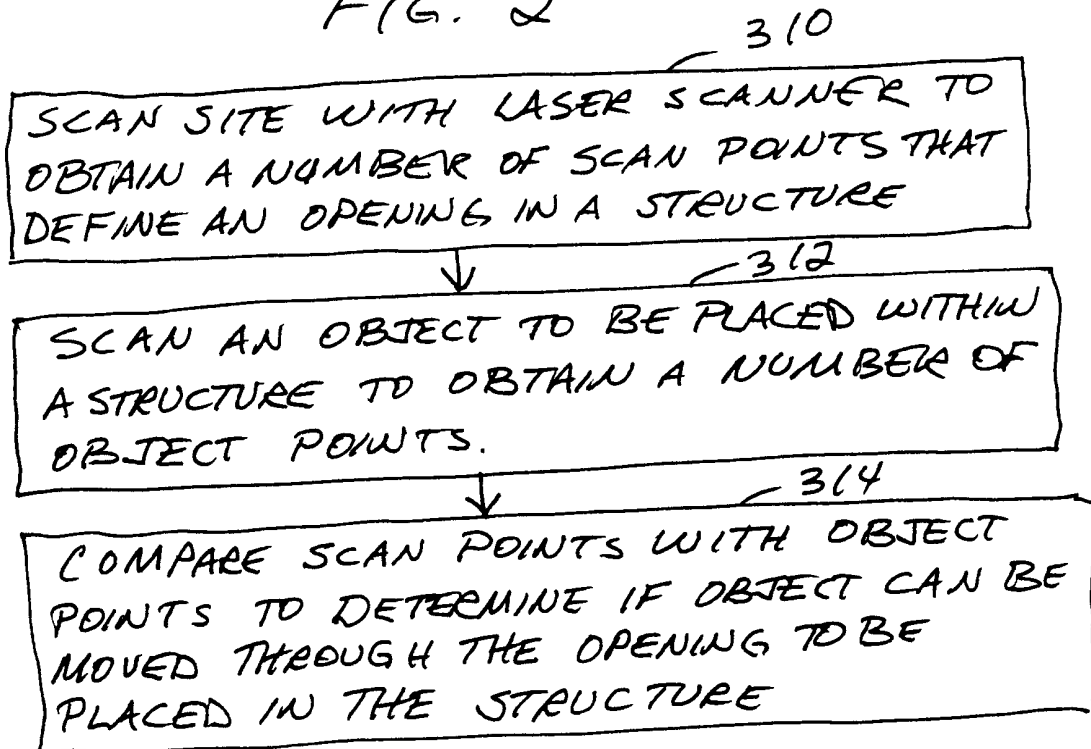 FIG. 2
310
SCAN SITE WITH LASER SCANNER TO
OBTAIN A NUMBER OF SCAN POINTS THAT
DEFINE AN OPENING IN A STRUCTURE
312
SCAN AN OBJECT TO BE PLACED WITHIN
A STRUCTURE TO OBTAIN A NUMBER OF
OBJECT POINTS.
314
COMPARE SCAN POINTS WITH OBJECT
POINTS TO DETERMINE IF OBJECT CAN BE
MOVED THROUGH THE OPENING TO BE
PLACED IN THE STRUCTURE